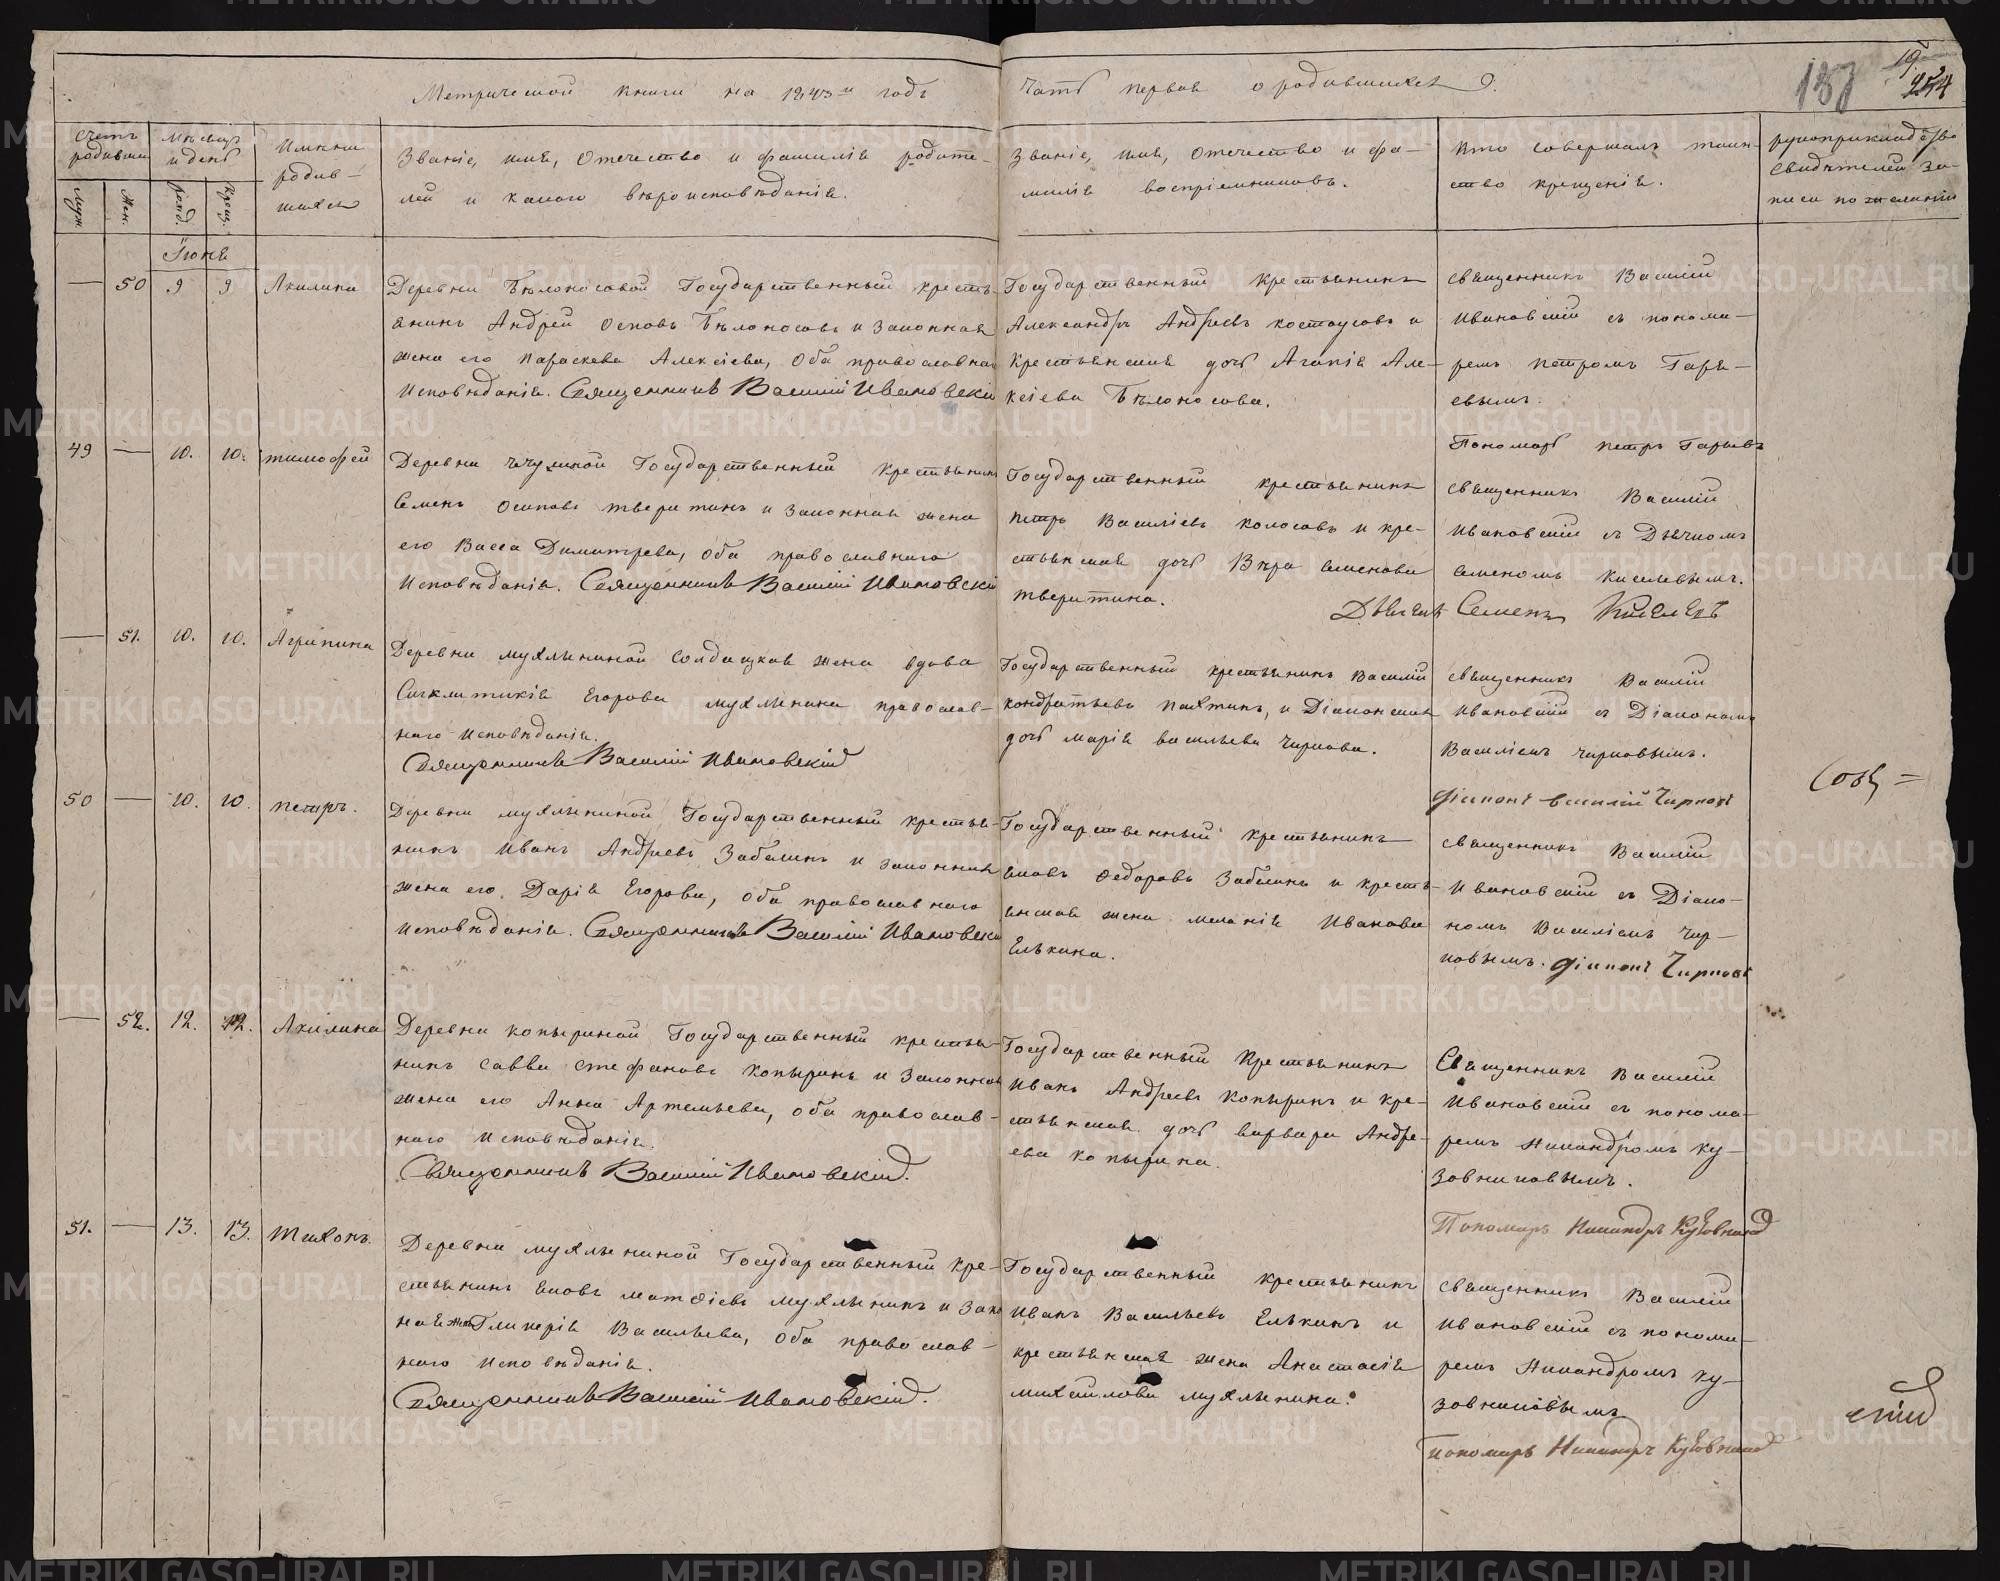 Метрической книги на 1843й годъ
Часть первая о родившихся
137
19
254
Счетъ родивши
Мѣсяцъ и день
Имена родив-
шихся
Званіе, имя, отечество и фамилія родите-
лей и какого вѣроисповѣданія.
Званіе, имя, отечество и фа-
милія воспріемниковъ.
Кто совершалъ таин-
ство крещенія.
рукоприкладство
свидѣтелей за-
писи по желанію
Муж.
Жен.
рожд.
Крещ.
Іюня
— 50 9 9 Акилина
Деревни Бѣлоносовой Государственный кресть-
янинъ Андрей Осиповъ Бѣлоносовъ и законная
жена его Параскева Алексіева, оба православна
исповѣданія. Священникъ Василій Ивановскій
Государственный крестьянинъ
Александръ Андреевъ Костоусовъ и
крестьянская дочь Агапія Але-
ксіева Бѣлоносова.
священникъ Василій
Ивановскій съ понома-
ремъ Петромъ Гаря-
евымъ.
Пономарь Петръ Гаряевъ
49 — 10. 10. Тимофей
Деревни Государственный крестьянинъ
Семенъ Осиповъ Тверитинъ и законная жена
его Васса Димитрева, оба православнаго
исповѣданія. Священникъ Василій Ивановскій
Государственный крестьянинъ
Петръ Василіевъ Колосовъ и кре-
стьянская дочь Вѣра Семенова
Тверитина.
священникъ Василій
Ивановскій съ Дьячкомъ
Семеномъ Киселевымъ.
Дьячекъ Семенъ Киселевъ
— 51. 10. 10. Агрипина
Деревни Мухлыниной солдатская жена вдова
Сигклитикія Егорова Мухлынина православ-
наго исповѣданія.
Священникъ Василій Ивановскій
Государственный крестьянинъ Василій
Кондратьевъ Пахтинъ, и Діаконская
дочь Марія Васильева Чиркова.
священникъ Василій
Ивановскій съ Діакономъ
Василіемъ Чирковымъ.
Діаконъ Василій Чирковъ
50 — 10. 10. Петръ.
Деревни Мухлыниной Государственный крестья-
нинъ Иванъ Андреевъ Забелинъ и законная
жена его Дарія Егорова, оба православнаго
исповѣданія. Священникъ Василій Ивановскій
Государственный крестьянинъ
Іаковъ Федоровъ Забелинъ и кресть-
янская жена Меланія Иванова
Елькина.
священникъ Василій
Ивановскій съ Діако-
номъ Василіемъ Чир-
ковымъ. Діаконъ Чирковъ
— 52. 12. 12. Акилина
Деревни Копыриной Государственный крестья-
нинъ Савва Стефановъ Копыринъ и законная
жена его Анна Артемьева, оба православ-
наго исповѣданія.
Священникъ Василій Ивановскій.
Государственный крестьянинъ
Иванъ Андреевъ Копыринъ и кре-
стьянская дочь Варвара Андре-
ева Копырина.
Священникъ Василій
Ивановскій съ понома-
ремъ Никандромъ Ку-
зовниковымъ.
Пономарь Никандръ Кузовников
51. — 13. 13. Тихонъ.
Деревни Мухлыниной Государственный кре-
стьянинъ Іаковъ Матѳіевъ Мухлынинъ и закон
ная жена Гликерія Васильева, оба православ-
наго исповѣданія.
Священникъ Василій Ивановскій.
Государственный крестьянинъ
Иванъ Васильевъ Елькинъ и
крестьянская жена Анастасія
Михайлова Мухлынина.
священникъ Василій
Ивановскій съ понома-
ремъ Никандромъ Ку-
зовниковымъ
Пономарь Никандръ Кузовников
METRIKI.GASO-URAL.RU